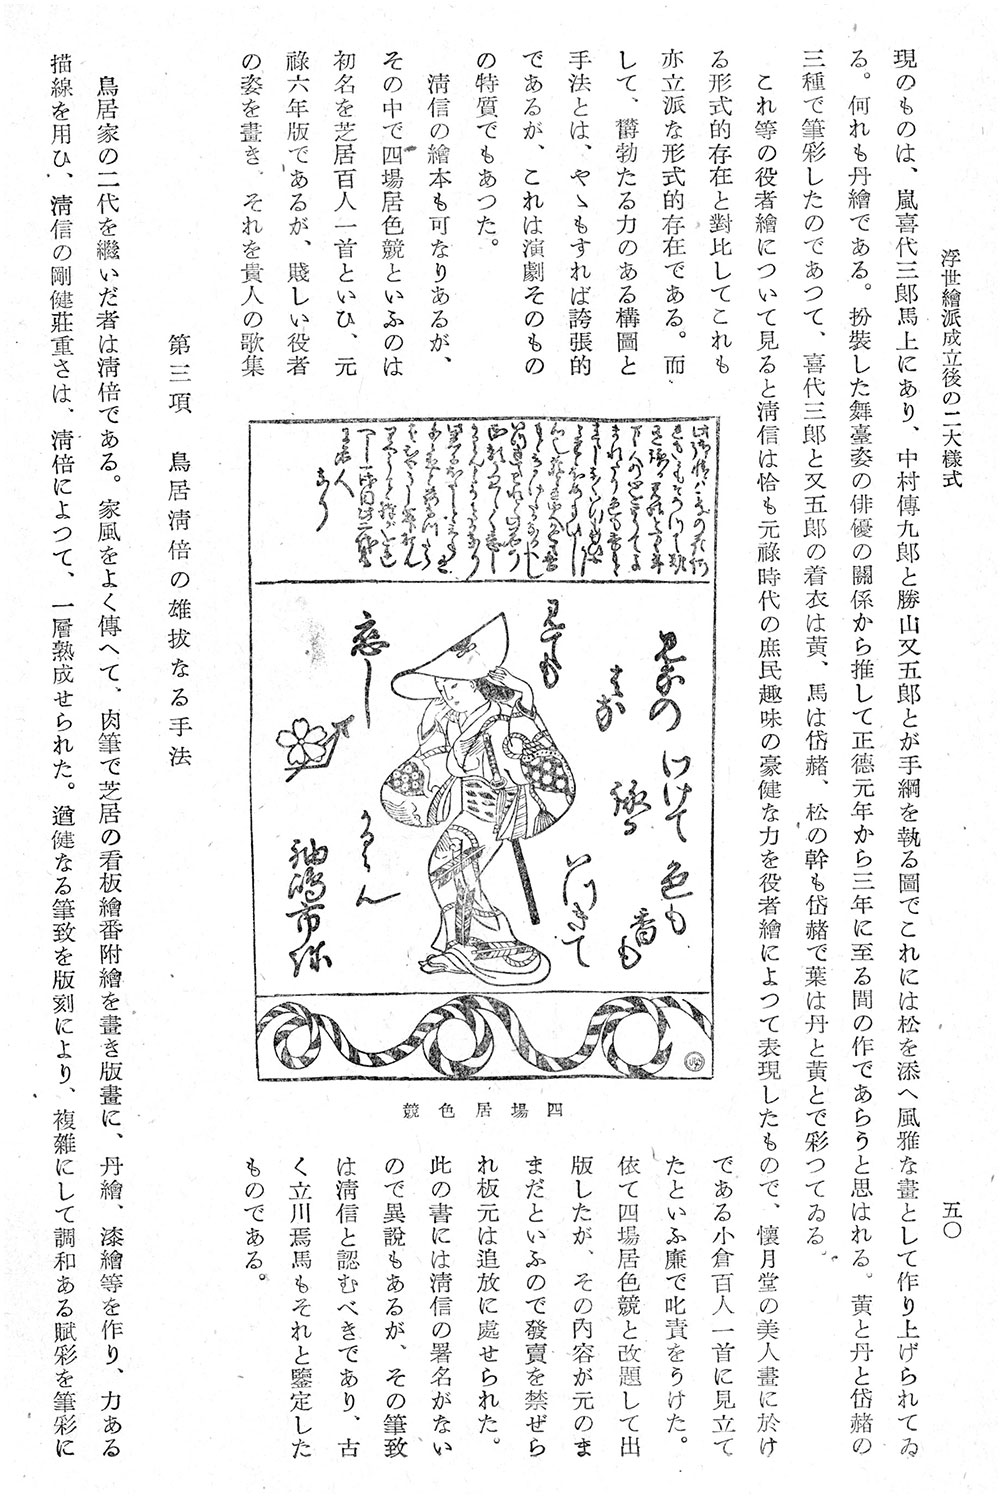 浮世繪派成立後の二大樣式
五〇
現のものは、嵐喜代三郞馬上にあり、中村傳九郞と勝山又五郞とが手綱を執る圖でこれには松を添へ風雅な畫として作り上げられてゐ
る。何れも丹繪である。扮裝した舞臺姿の俳優の關係から推して正德元年から三年に至る間の作であらうと思はれる。黃と丹と岱赭の
三種で筆彩したのであつて、喜代三郞と又五郞の着衣は黃、馬は岱赭、松の幹も岱赭で葉は丹と黃とで彩つてゐる。
これ等の役者繪について見ると淸信は恰も元祿時代の庶民趣味の豪健な力を役者繪によつて表現したもので、懷月堂の美人畫に於け
る形式的存在と對比してこれも
亦立派な形式的存在である。而
して、欝勃たる力のある構圖と
手法とは、やゝもすれば誇張的
であるが、これは演劇そのもの
の特質でもあつた。
淸信の繪本も可なりあるが、
その中で四場居色競といふのは
初名を芝居百人一首といひ、元
祿六年版であるが、賤しい役者
の姿を畫き、それを貴人の歌集
四場居色競
である小倉百人一首に見立て
たといふ廉で叱責をうけた。
依て四場居色競と改題して出
版したが、その內容が元のま
まだといふので發賣を禁ぜら
れ板元は追放に處せられた。
此の書には淸信の署名がない
ので異說もあるが、その筆致
は淸信と認むべきであり、古
く立川焉馬もそれと鑒定した
ものである。
第三項　鳥居淸倍の雄拔なる手法
鳥居家の二代を繼いだ者は淸倍である。家風をよく傳へて、肉筆で芝居の看板繪番附繪を畫き版畫に、丹繪、漆繪等を作り、力ある
描線を用ひ、淸信の剛健莊重さは、淸倍によつて、一層熟成せられた。遒健なる筆致を版刻により、複雜にして調和ある賦彩を筆彩に